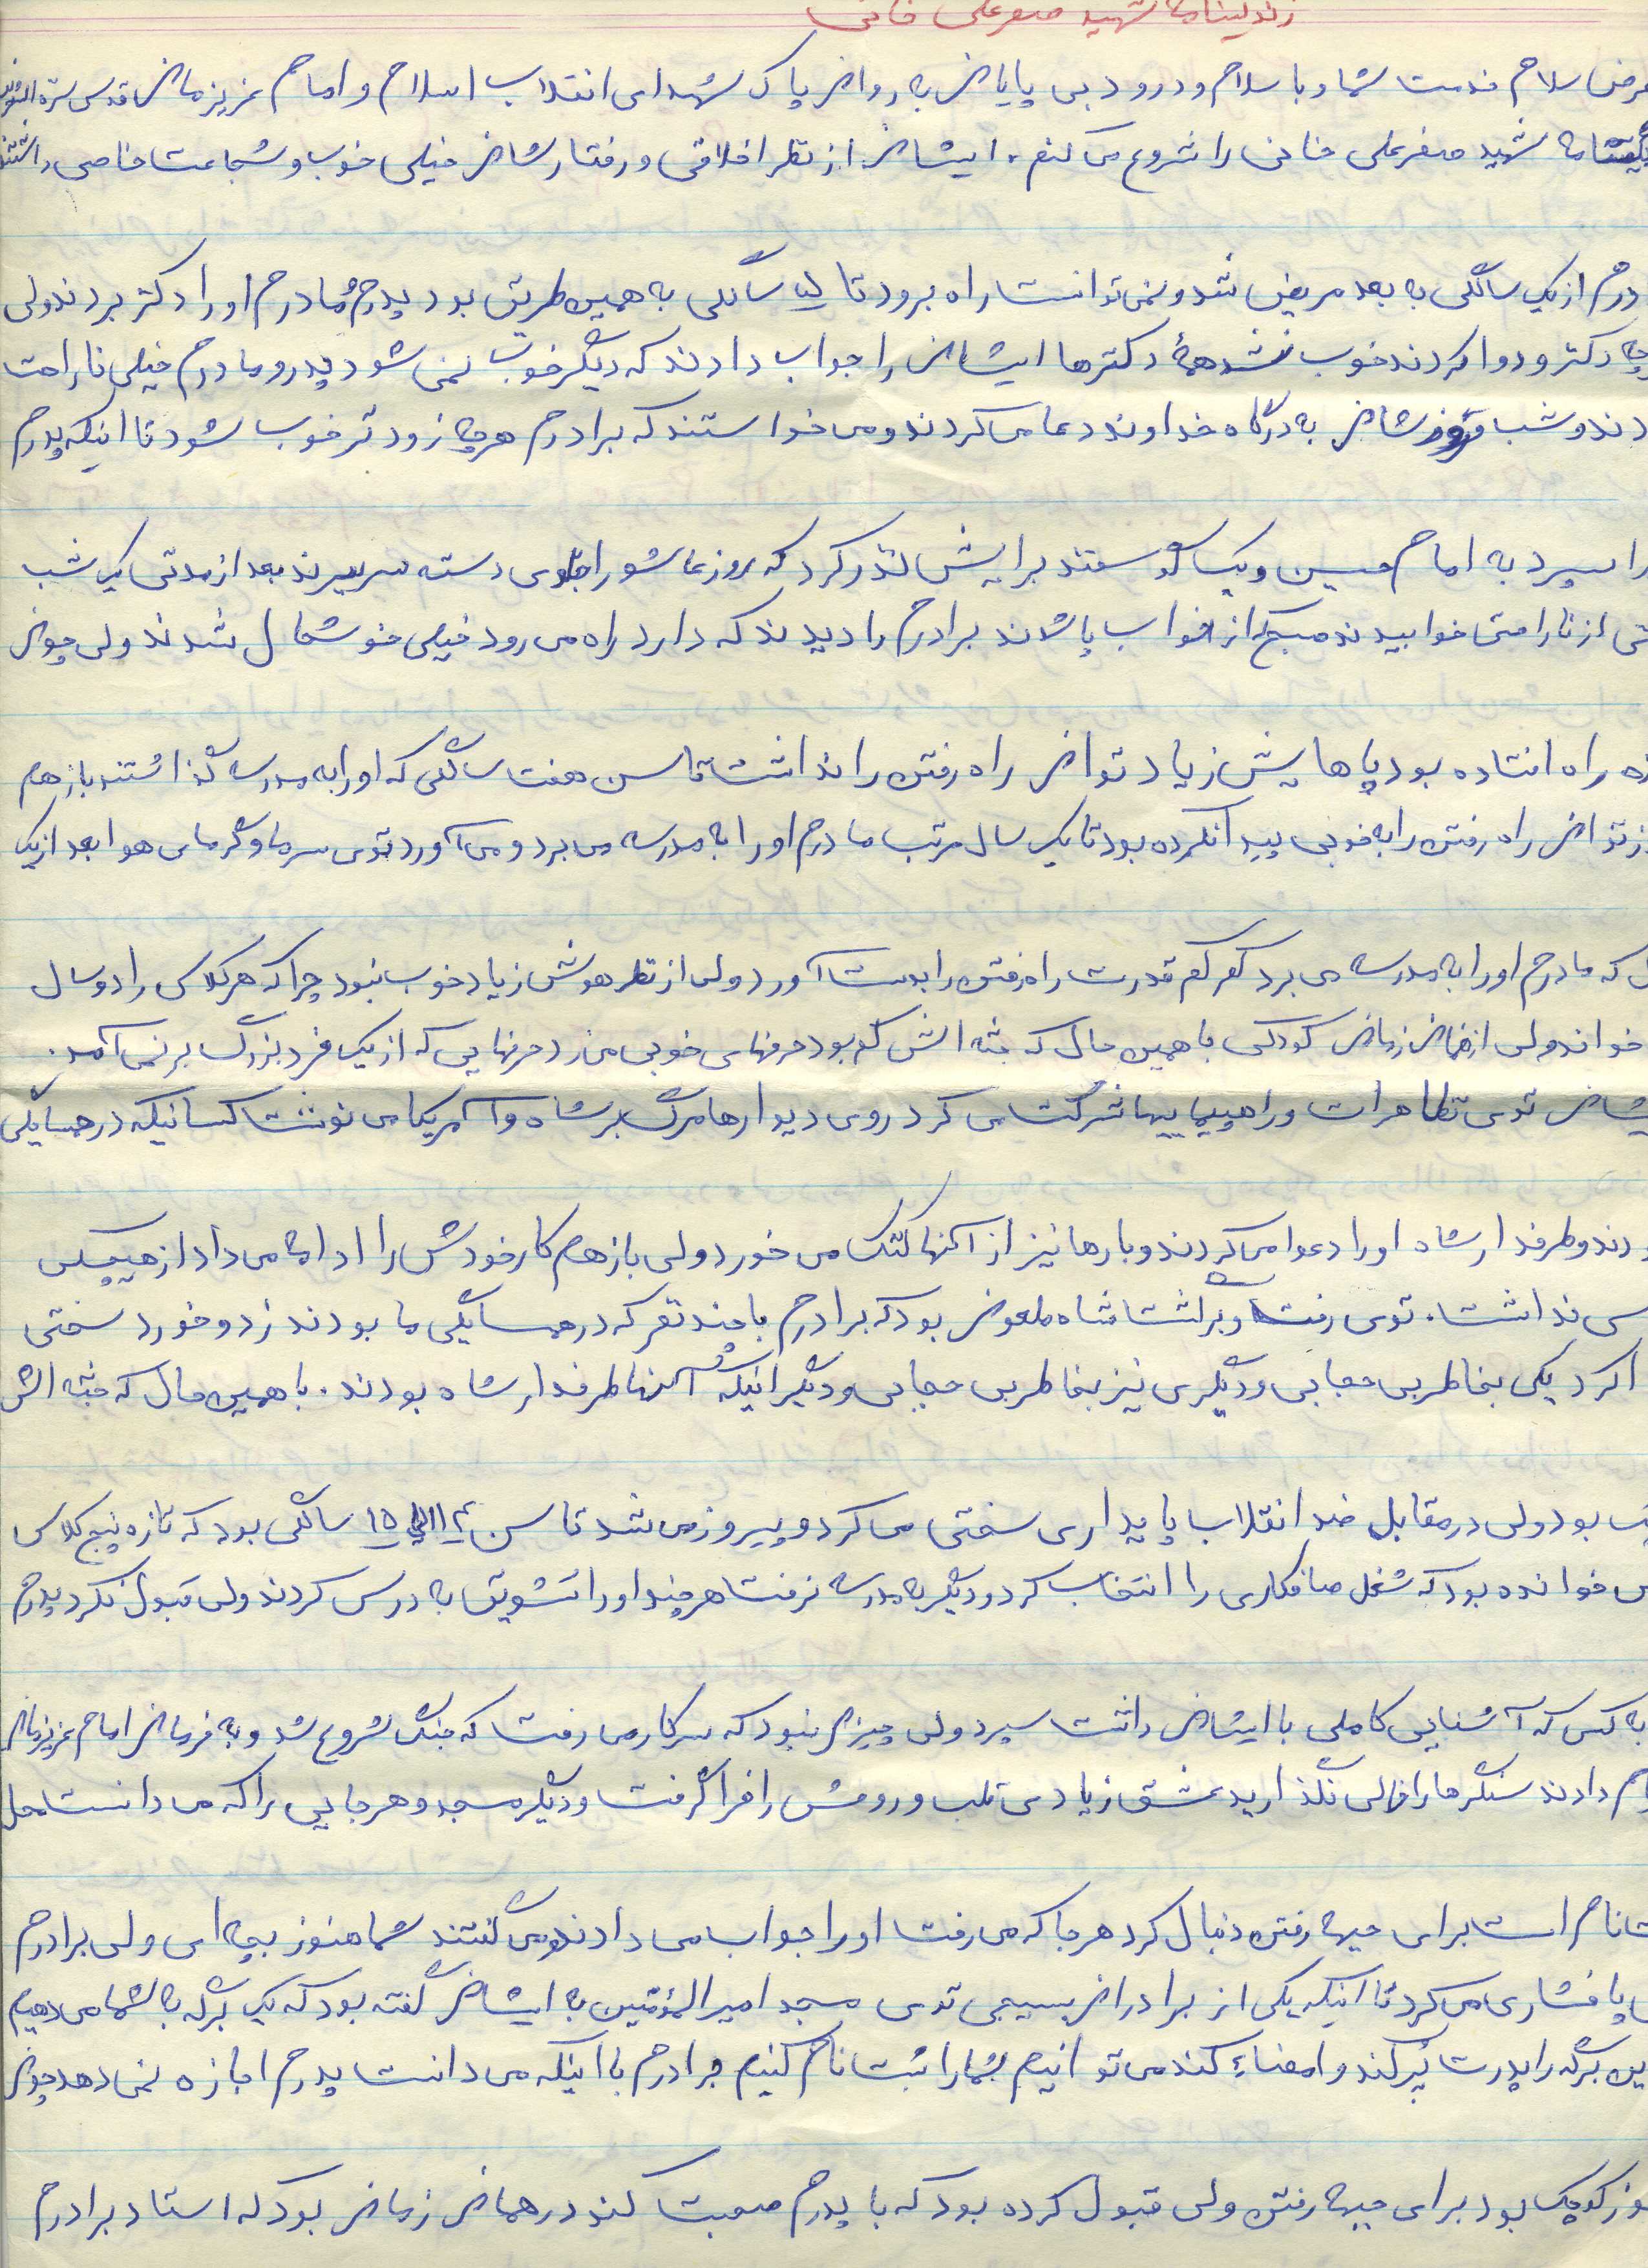 زندگینامه شهید صفرعلی خانی
عرض سلام خدمت شما و با سلام و درود بی پایان به روان پاک شهدای انقلاب اسلام و امام عزیزمان قدس سره
شهید صفرعلی خانی را شروع می کنم. ایشان از نظر اخلاقی و رفتارشان خیلی خوب و شجاعت خاصی داشتند
درم از یک سالگی به بعد مریض شد و نمی توانست راه برود تا سالگی به همین طریق بود پدرم و مادرم او را دکتر بردند ولی
چه دکتر و دوا کردند خوب نشد همهٔ دکترها ایشان را جواب دادند که دیگر خوب نمی شود پدر و مادرم خیلی ناراحت
دند و شب و روزشان به درگاه خداوند دعا می کردند و می خواستند که برادرم هر چه زودتر خوب شود تا اینکه پدرم
را سپرد به امام حسین و یک گوسفند برایش نذر کرد که روز عاشورا جلوی دسته سر ببرند بعد از مدتی یک شب
تی از ناراحتی خوابیدند صبح از خواب پا شدند برادرم را دیدند که دارد راه می رود خیلی خوشحال شدند ولی چون
زه راه افتاده بود پاهایش زیاد توان راه رفتن را نداشت تا سن هفت سالگی که او را به مدرسه گذاشتند باز هم
ز توان راه رفتن را به خوبی پیدا نکرده بود تا یک سال مرتب مادرم او را به مدرسه می برد و می آورد توی سرما و گرمای هوا بعد از یک
ل که مادرم او را به مدرسه می برد کم کم قدرت راه رفتن را بدست آورد ولی از نظر هوش زیاد خوب نبود چرا که هر کلاس را دو سال
خواند ولی از همان زمان کودکی با همین حال که جثه اش کم بود حرفهای خوبی می زد حرفهایی که از یک فرد بزرگ بر نمی آمد.
یشان توی تظاهرات و راهپیماییها شرکت می کرد روی دیوارها مرگ بر شاه و آمریکا می نوشت کسانیکه در همسایگی
دند و طرفدار شاه او را دعوا می کردند و بارها نیز از آنها کتک می خورد ولی باز هم کار خودش را ادامه می داد از هیچکس
سی نداشت. توی رفت و برگشت شاه ملعون بود که برادرم با چند نفر که در همسایگی ما بودند زد و خورد سختی
ا کرد یکی بخاطر بی حجابی و دیگری نیز بخاطر بی حجابی و دیگر اینکه آنها طرفدار شاه بودند. با همین حال که جثه اش
بود ولی در مقابل ضد انقلاب پایداری سختی می کرد و پیروز می شد تا سن ۱۵ سالگی بود که تازه پنج کلاس
س خوانده بود که شغل صافکاری را انتخاب کرد و دیگر به مدرسه نرفت هر چند او را تشویق به درس کردند ولی قبول نکرد پدرم
به کسی که آشنایی کاملی با ایشان داشت سپرد ولی چیزی نبود که سر کار می رفت که جنگ شروع شد و به فرمان امام عزیزمان
م دادند سنگرها را خالی نگذارید عشق زیادی قلب و روحش را فرا گرفت و دیگر مسجد و هر جایی را که می دانست محل
ت نام است برای جبهه رفتن دنبال کرد هر جا که می رفت او را جواب می دادند و می گفتند شما هنوز بچه ای ولی برادرم
پافشاری می کرد تا اینکه یکی از برادران بسیجی توی مسجد امیرالمؤمنین به ایشان گفته بود که یک برگه به شما می دهیم
ین برگه را پدرت پر کند و امضاء کند می توانیم شما را ثبت نام کنیم برادرم با اینکه می دانست پدرم اجازه نمی دهد چون
وز کوچک بود برای جبهه رفتن ولی قبول کرده بود که با پدرم صحبت کند در همان زمان بود که استاد برادرم